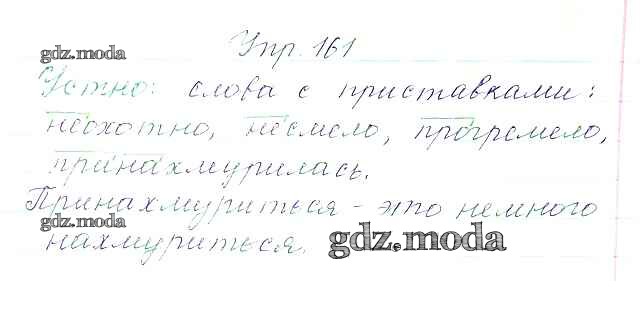 Упр. 161
gdz.moda
Устно: слова с приставками:
неохотно, несмело, прогремело,
принахмурилась.
Принахмуриться - это немного
gdz.moda
нахмуриться.
gdz.moda